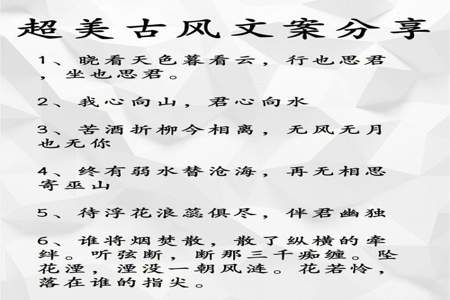 超美古风文案分享
1、晓看天色暮看云，行也思君
，坐也思君。
2、我心向山，君心向水
3、苦酒折柳今相离，无风无月
也无你
4、终有弱水替沧海，再无相思
寄巫山
5、待浮花浪蕊俱尽，伴君幽独
6、谁将烟焚散，散了纵横的牵
绊。听弦断，断那三千痴缠。坠
花湮，湮没一朝风涟。花若怜，
落在谁的指尖。